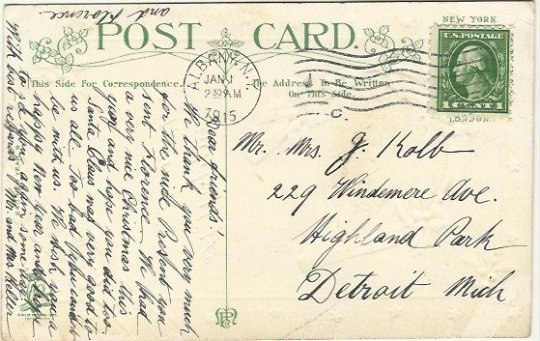 POST CARD.
This Side For Correspondence.
The Address to Be Written
On This Side.
NEW YORK
LONDON.
U.S. POSTAGE
1 CENT 1
ALBANY, N.Y.
JAN 1
2 30 AM
1915
C.
Dear Friends!
We thank you very much
for the nice Present you
sent Florence. We had
a very nice Christmas this
year and hope you did too.
Santa Claus was very good to
us all. Too bad you can't
be with us. We wish you a
happy New Year, and hope
to see you again some day.
With best regards Mr. and Mrs. Keller
and Florence
Mr. Mrs. J. Kolb
229 Windemere Ave.
Highland Park
Detroit Mich